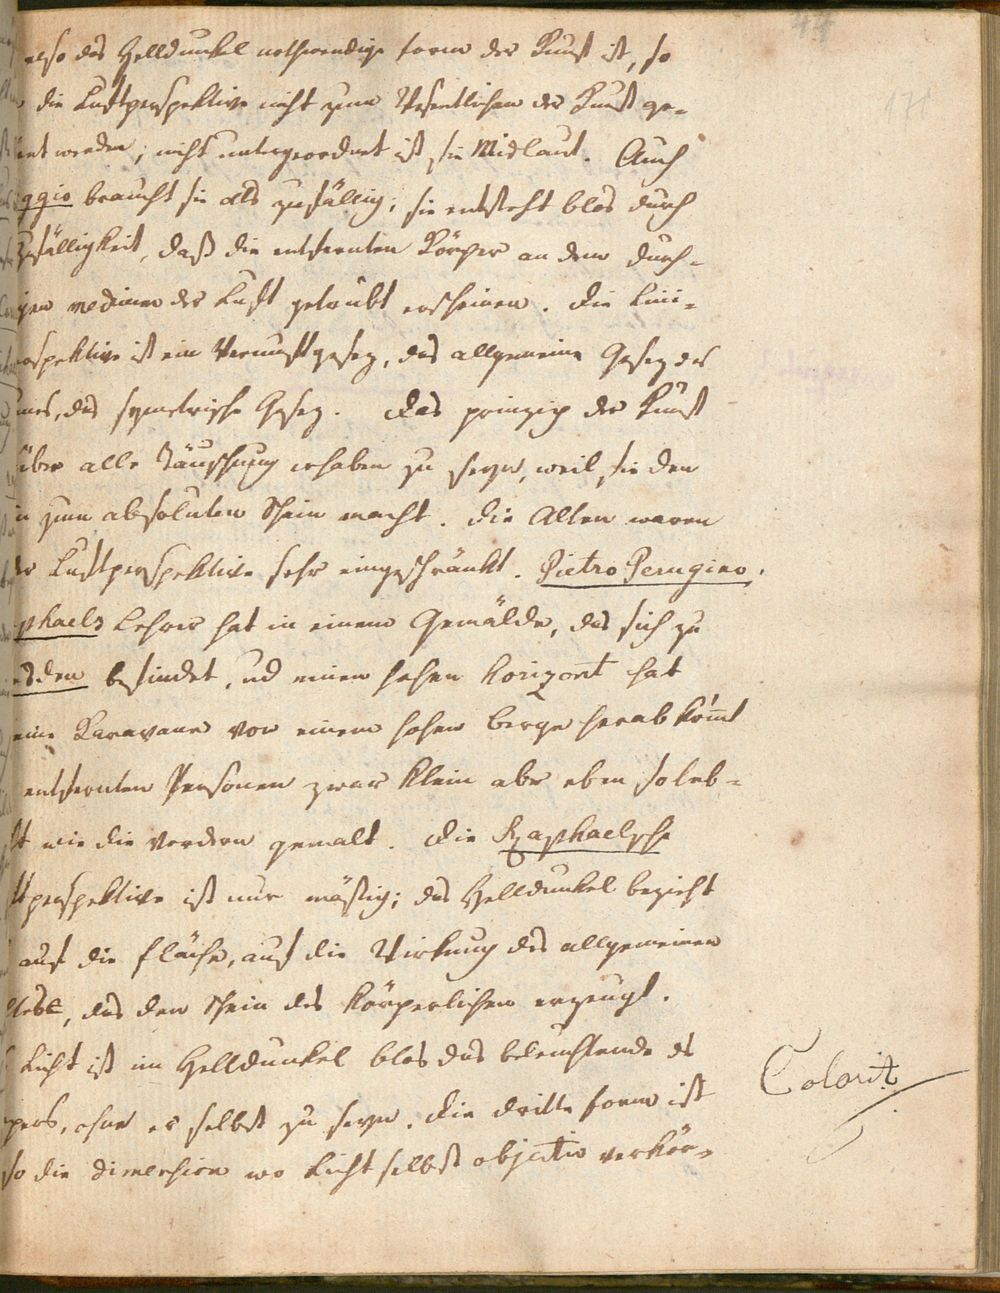 44
171
also das Helldunkel nothwendige Form der Kunst ist, so
die Luftperspektive nicht zum Wesentlichen der Kunst ge-
nt werden; nicht untergeordnet ist sie Mislaut. Auch
ggio braucht sie als zufällig; sie entsteht blos durch
Zufälligkeit, daß die entfernten Körper an dem durch-
gen medium der Luft getrübt erscheinen. Die Lini-
rspektive ist ein Vernunftgesez, das allgemeine Gesez des
mes, das symetrische Gesez. Das prinzip der Kunst
über alle Täuschung erhaben zu seyn, weil sie den
n zum absoluten Schein macht. Die Alten waren
er Luftperspektive sehr eingeschränkt. Pietro Perugino,
phaels Lehrer hat in einem Gemälde, das sich zu
esden befindet, und einen hohen Horizont hat
eine Karavane von einem hohen Berge herab kömt
entfernten Personen zwar klein aber eben so leb-
ft wie die vordern gemalt. Die Raphaelsche
ftperspektive ist nur mäßig; das Helldunkel bezieht
auf die Fläche, auf die Wirkung des allgemeinen
, das den Schein des Körperlichen erzeugt.
Licht ist im Helldunkel blos das beleuchtende des
pers, ohne es selbst zu seyn. Die dritte Form ist
so die Dimension wo Licht selbst objectiv verkör-
Colorit